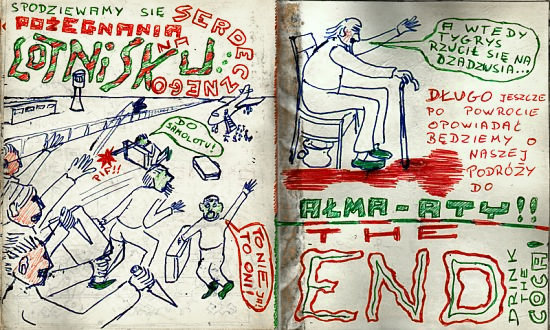 SPODZIEWAMY SIĘ
SERDECZNEGO
POŻEGNANIA
NA
LOTNISKU
DO
SAMOLOTU!
PIF!!
TO NIE
TO ONI!
A WTEDY
TYGRYS
RZUCIŁ SIĘ NA
DZADZIUSIA...
DŁUGO JESZCZE
PO POWROCIE
OPOWIADAĆ
BĘDZIEMY O
NASZEJ
PODRÓŻY
DO
AŁMA-ATY!!
THE
END
DRINK
THE
COCA!